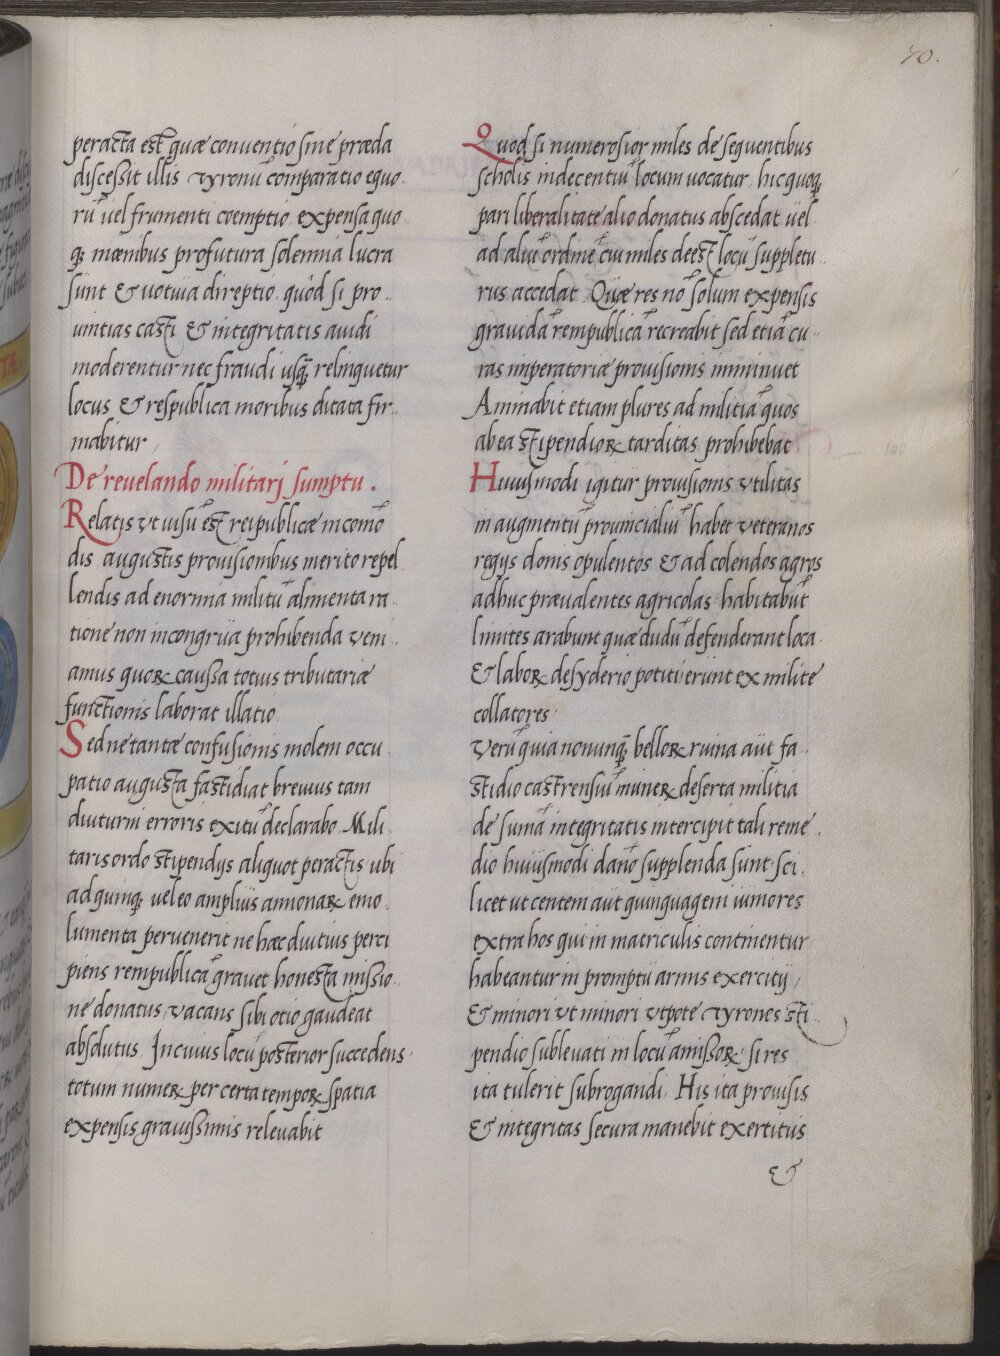 70.
peracta est quæ conventio sine præda
discessit illis tyronū comparatio equo
rū uel frumenti coemptio expensa quo
qꝫ mœnibus profutura solemnia lucra
sunt & uotiua direptio. quòd si pro
uintias casti & integritatis auidi
moderentur nec fraudi usq̃ relinquetur
locus & respublica moribus ditata fir
mabitur
De reuelando militari sumptu.
Relatis ut uisū est reipublicæ incomo
dis augustis prouisionibus merito repel
lendis ad enormia militū alimenta ra
tione non incongrua prohibenda veni
amus quoꝝ caussa totius tributariæ
functionis laborat illatio
Sed ne tantæ confusionis molem occu
patio augusta fastidiat breuius tam
diuturni erroris exitū declarabo. Mili
taris ordo stipendijs aliquot peractis ubi
ad quinqꝫ uel eo amplius annonaꝝ emo
lumenta peruenerit ne hæc diutius perci
piens rempublicā grauet honesta missio
ne donatus vacans sibi otio gaudeat
absolutus. In cuius locū posterior succedens
totum numeꝝ per certa tempoꝝ spatia
expensis grauissimis releuabit
Quod si numerosior miles de sequentibus
scholis indecentiū locum uocatur hic quoqꝫ
pari liberalitate alio donatus abscedat uel
ad aliū ordinē cui miles deest locū suppletu
rus accedat Quæ res nō solum expensis
grauidā rempublicā recreabit sed etiā cu
ras imperatoriæ prouisionis imminuet
Animabit etiam plures ad militiā quos
ab ea stipendioꝝ tarditas prohibebat
Huiusmodi igitur prouisionis utilitas
in augmentū prouincialiū habet veteranos
regijs donis opulentos & ad colendos agros
adhuc præualentes agricolas habitabūt
limites arabunt quæ dudū defenderant loca
& laboꝝ desyderio potiti erunt ex milite
collatores
Verū quia nonunq̃ belloꝝ ruina aūt fa
stidio castrensiū muneꝝ deserta militia
de sumā integritatis intercipit tali reme
dio huiusmodi damō supplenda sunt sci
licet ut centeni aūt quinquageni iuniores
extra hos qui in matriculis continentur
habeantur in promptu armis exercitij,
& minori ut minori utpote tyrones sti
pendio subleuati in locū amissoꝝ si res
ita tulerit subrogandi. His ita prouisis
& integritas secura manebit exertitus
&